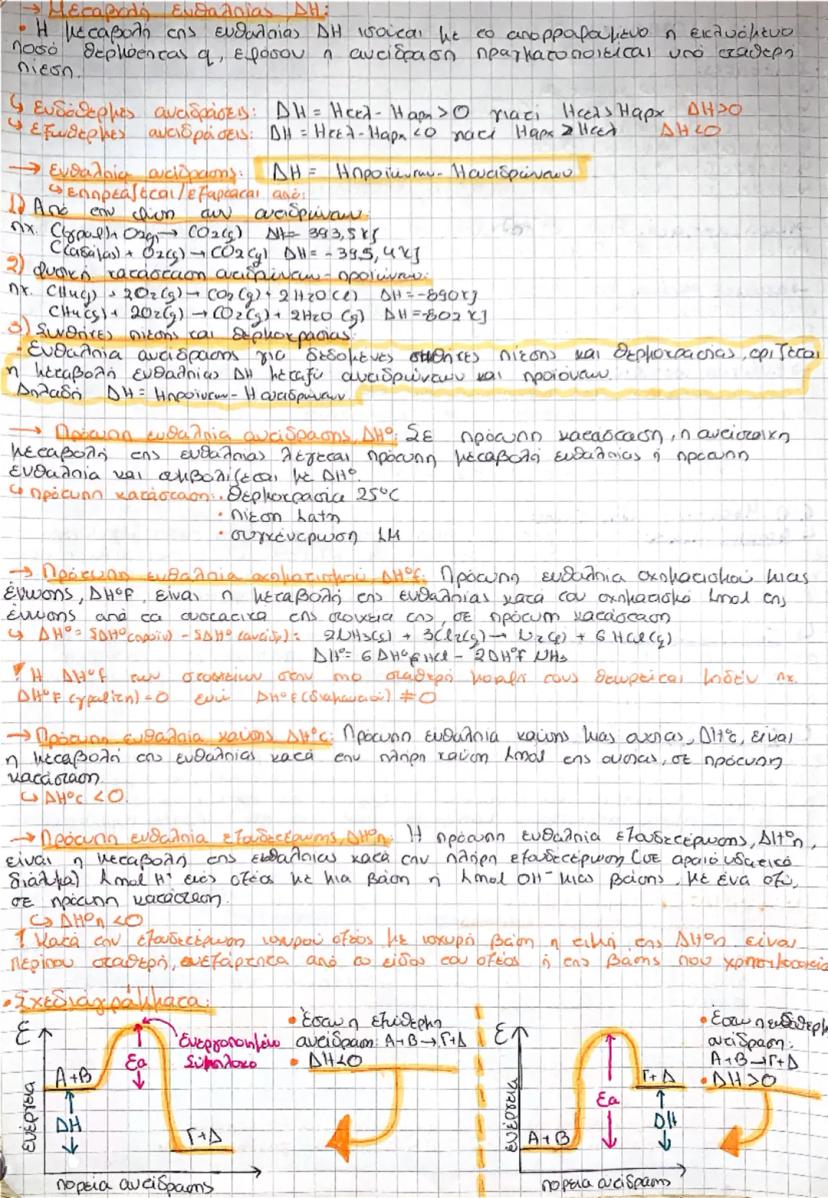 → Μεταβολή ενθαλπίας ΔΗ:
• Η μεταβολή της ενθαλπίας ΔΗ ισούται με το απορροφούμενο ή εκλυόμενο
ποσό θερμότητας q, εφόσον η αντίδραση πραγματοποιείται υπό σταθερή
πίεση.
↳ Ενδόθερμες αντιδράσεις: ΔΗ = Ητελ - Ηαρχ > 0 γιατί Ητελ > Ηαρχ ΔΗ>0
↳ Εξώθερμες αντιδράσεις: ΔΗ = Ητελ - Ηαρχ < 0 γιατί Ηαρχ > Ητελ ΔΗ<0
→ Ενθαλπία αντίδρασης: ΔΗ = Ηπροϊόντων - Ηαντιδρώντων
↳ επηρεάζεται/εξαρτάται από:
1) Από την φύση των αντιδρώντων
πχ. C(γραφ) + O2(g) → CO2(g) ΔΗ = - 393,5 kJ
C(αδάμας) + O2(g) → CO2(g) ΔΗ = - 395,4 kJ
2) φυσική κατάσταση αντιδρώντων-προϊόντων:
πχ. CH4(g) + 2O2(g) → CO2(g) + 2H2O(l) ΔΗ = -890 kJ
CH4(g) + 2O2(g) → CO2(g) + 2H2O(g) ΔΗ = -802 kJ
3) Συνθήκες πίεσης και θερμοκρασίας:
• Ενθαλπία αντίδρασης για δεδομένες συνθήκες πίεσης και θερμοκρασίας, ορίζεται
η μεταβολή ενθαλπίας ΔΗ μεταξύ αντιδρώντων και προϊόντων.
Δηλαδή ΔΗ = Ηπροϊόντων - Ηαντιδρώντων
→ Πρότυπη ενθαλπία αντίδρασης, ΔΗ°: Σε πρότυπη κατάσταση, η αντίστοιχη
μεταβολή της ενθαλπίας λέγεται πρότυπη μεταβολή ενθαλπίας ή πρότυπη
ενθαλπία και συμβολίζεται με ΔΗ°.
↳ πρότυπη κατάσταση: • Θερμοκρασία 25°C
• πίεση 1atm
• συγκέντρωση 1M
→ Πρότυπη ενθαλπία σχηματισμού ΔΗ°f: Πρότυπη ενθαλπία σχηματισμού μιας
ένωσης, ΔΗ°f, είναι η μεταβολή της ενθαλπίας κατά τον σχηματισμό 1mol της
ένωσης από τα συστατικά της στοιχεία της, σε πρότυπη κατάσταση
↳ ΔΗ° = ΣΔΗ°(προϊν) - ΣΔΗ°(αντιδρ): 2NH3(g) + 3Cl2(g) → N2(g) + 6HCl(g)
ΔΗ° = 6ΔΗ°f HCl - 2ΔΗ°f NH3
! Η ΔΗ°f των στοιχείων στην πιο σταθερή μορφή τους θεωρείται μηδέν πχ.
ΔΗ°f (γραφίτη) = 0 ενώ ΔΗ°f (διαμαντιού) ≠ 0
→ Πρότυπη ενθαλπία καύσης ΔΗ°c: Πρότυπη ενθαλπία καύσης μιας ουσίας, ΔΗ°c, είναι
η μεταβολή της ενθαλπίας κατά την πλήρη καύση 1mol της ουσίας, σε πρότυπη
κατάσταση
↳ ΔΗ°c < 0.
→ Πρότυπη ενθαλπία εξουδετέρωσης, ΔΗ°n: Η πρότυπη ενθαλπία εξουδετέρωσης, ΔΗ°n,
είναι η μεταβολή της ενθαλπίας κατά την πλήρη εξουδετέρωση (σε αραιό υδατικό
διάλυμα) 1mol H⁺ ενός οξέος με μια βάση ή 1mol OH⁻ μιας βάσης, με ένα οξύ,
σε πρότυπη κατάσταση.
↳ ΔΗ°n < 0
! Κατά την εξουδετέρωση ισχυρού οξέος με ισχυρή βάση η τιμή της ΔΗ°n είναι
περίπου σταθερή, ανεξάρτητα από το είδος του οξέος ή της βάσης που
• Σχεδιαγράμματα:
Ε
ενέργεια
Α+Β
ΔΗ
Εα
Ενεργοποιημένο
Σύμπλοκο
Γ+Δ
πορεία αντίδρασης
• Έστω η εξώθερμη
αντίδραση: Α+Β → Γ+Δ
• ΔΗ<0
Ε
ενέργεια
Α+Β
Εα
Γ+Δ
ΔΗ
πορεία αντίδρασης
• Έστω η ενδόθερμη
αντίδραση:
Α+Β → Γ+Δ
• ΔΗ>0